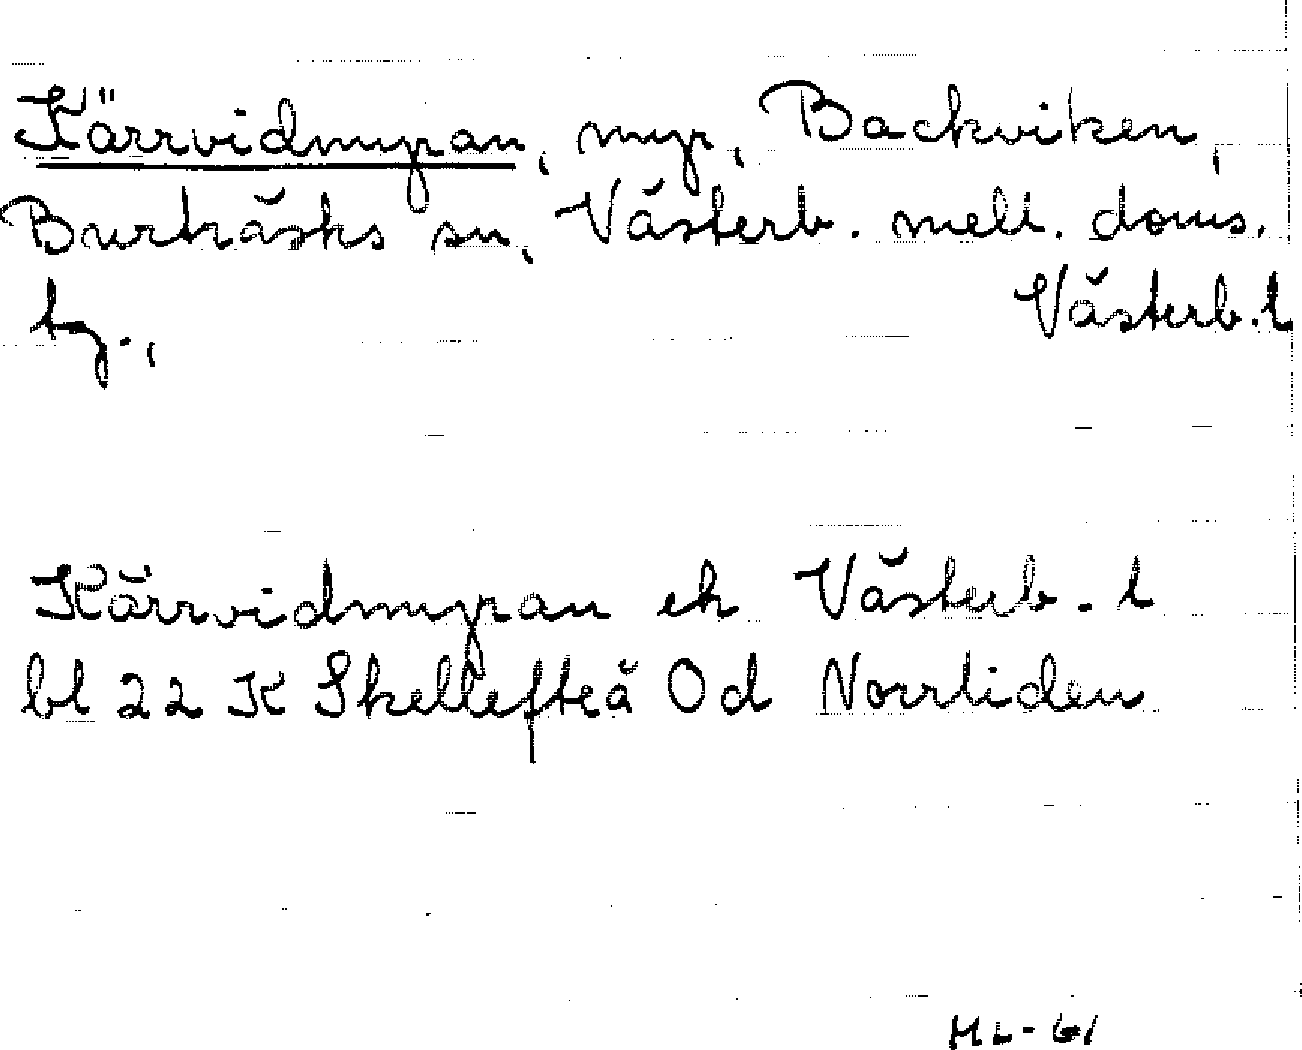 Kärrvidmyran, myr, Backviken,
Burträsks sn, Västerb. mell. doms.
tg., Västerb. l
Kärrvidmyran ek Västerb. l
bl 22 K Skellefteå Od Norrliden
ML-61